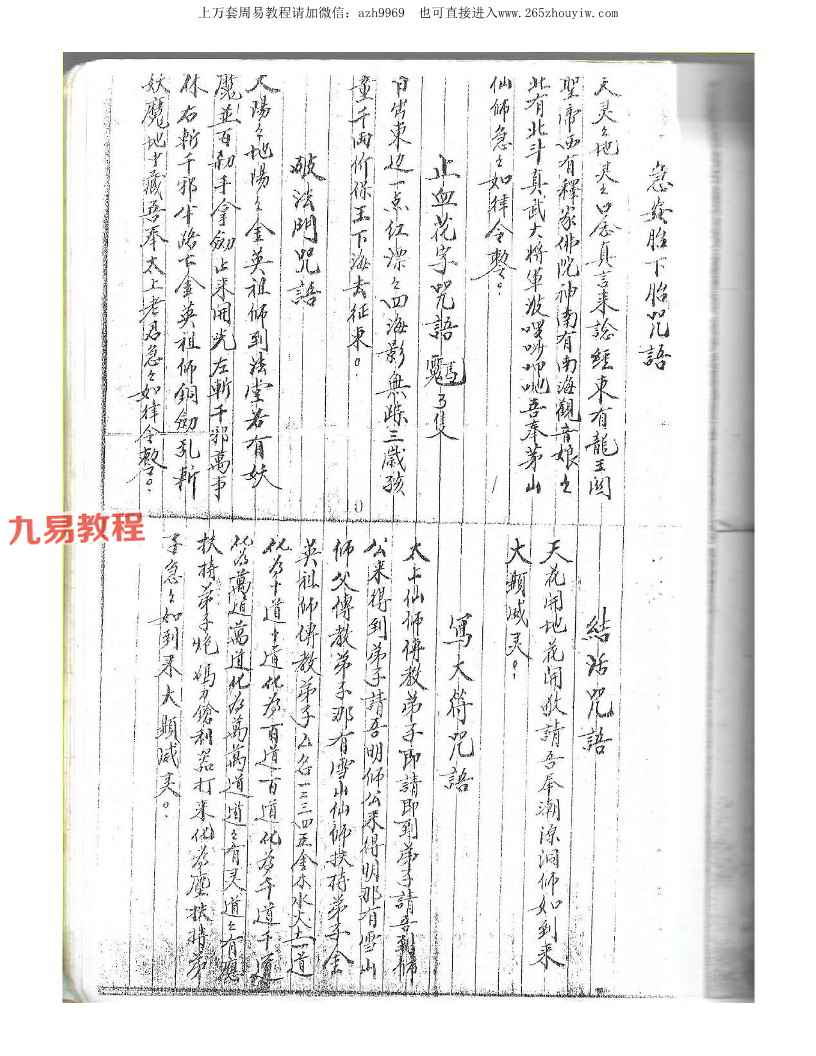 上万套周易教程请加微信：azh9969 也可直接进入www.265zhouyiw.com
胎下胎咒語
天灵々地灵々口念真言来諗經東有龍王関
聖帝西有釋家佛院神南有南海觀音娘々
北有北斗真武大将軍波吧吾奉茅山
仙师急々如律令
止血花字咒語 3隻
日出東边一点红漂々四海影無踪三歲孩
童千两价保王下海去征東。
破法門咒語
太陽々地陽々金英祖师到法堂若有妖
魔並百劲手拿劍止来開光左斬千邪萬事
休右斬千邪半路亡金英祖师銅劍乱斬
妖魔地中藏吾奉太上老君急々如律令
九易教程
結法咒語
天花開地花開敬請吾奉潮源洞师如到来
大顯威灵。
寫大符咒語
太上仙师傅教弟子即請即到弟子請吾到师
公来得到弟子請吾明师公来得明那有雪山
师父傳教弟子那有雪山仙师扶持弟子金
英祖师傳教弟子么名一二三四五金木水火土道
化為十道十道化為百道百道化為千道千道
化為萬道萬道化為萬萬道道々有灵道々有應
扶持弟子炮碼刀鎗利器打来化為塵扶持弟
子急々如到来大顯威灵。